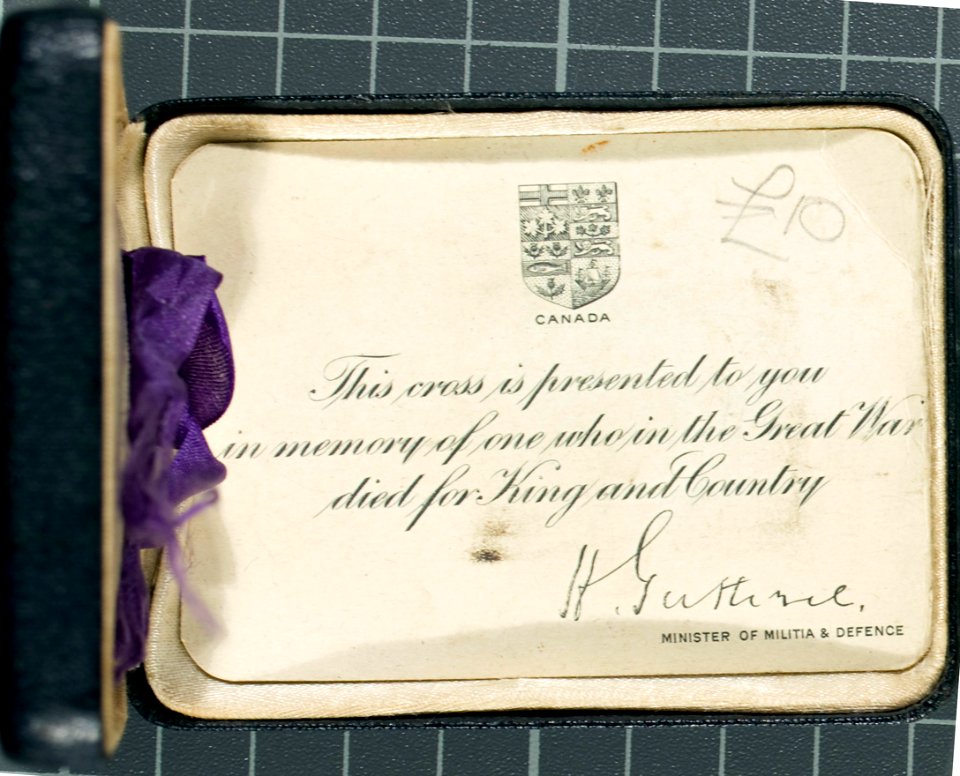 £10
CANADA
This cross is presented to you
in memory of one who in the Great War
died for King and Country
H. Guthrie.
MINISTER OF MILITIA & DEFENCE